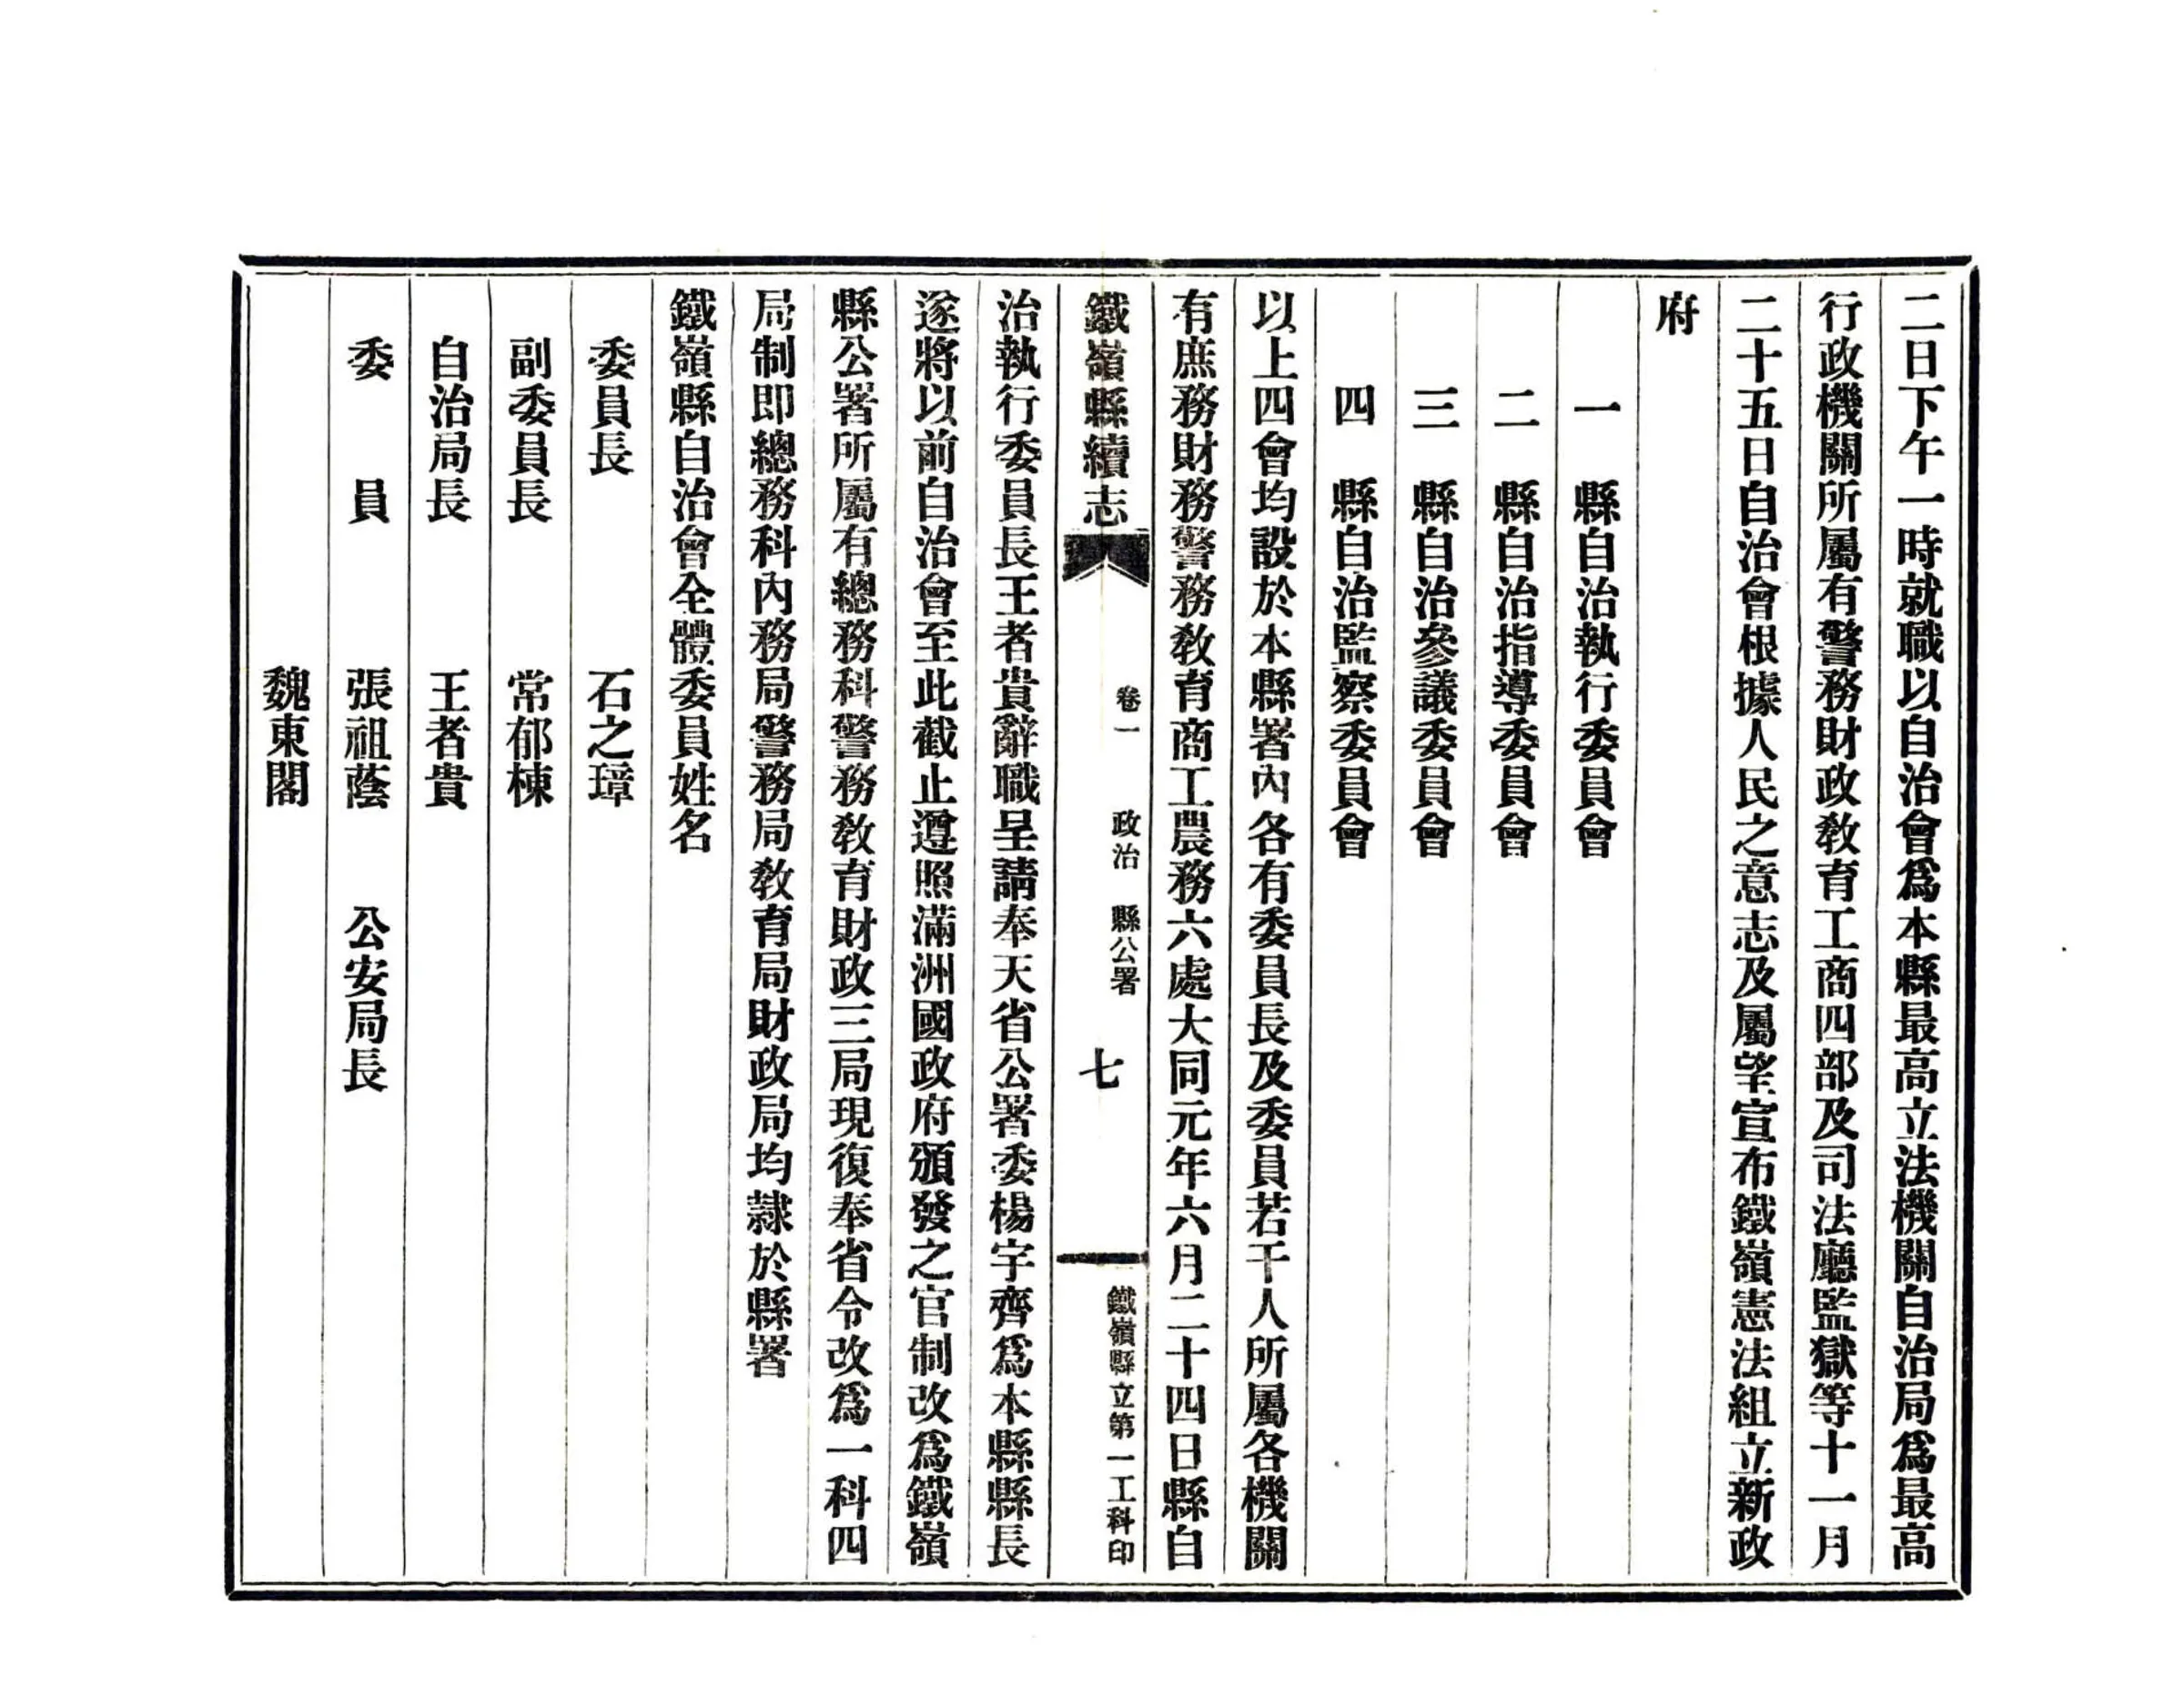 二日下午一時就職以自治會爲本縣最高立法機關自治局爲最高
行政機關所屬有警務財政敎育工商四部及司法廳監獄等十一月
二十五日自治會根據人民之意志及屬望宣布鐵嶺憲法組立新政
府
一　縣自治執行委員會
二　縣自治指導委員會
三　縣自治參議委員會
四　縣自治監察委員會
以上四會均設於本縣署內各有委員長及委員若干人所屬各機關
有庶務財務警務敎育商工農務六處大同元年六月二十四日縣自
鐵嶺縣續志　卷一　政治　縣公署　七　鐵嶺縣立第一工科印
治執行委員長王者貴辭職呈請奉天省公署委楊宇齊爲本縣縣長
遂將以前自治會至此截止遵照滿洲國政府頒發之官制改爲鐵嶺
縣公署所屬有總務科警務敎育財政三局現復奉省令改爲一科四
局制即總務科內務局警務局敎育局財政局均隸於縣署
鐵嶺縣自治會全體委員姓名
委員長　石之璋
副委員長　常郁棟
自治局長　王者貴
委員　張祖蔭　公安局長
魏東閣